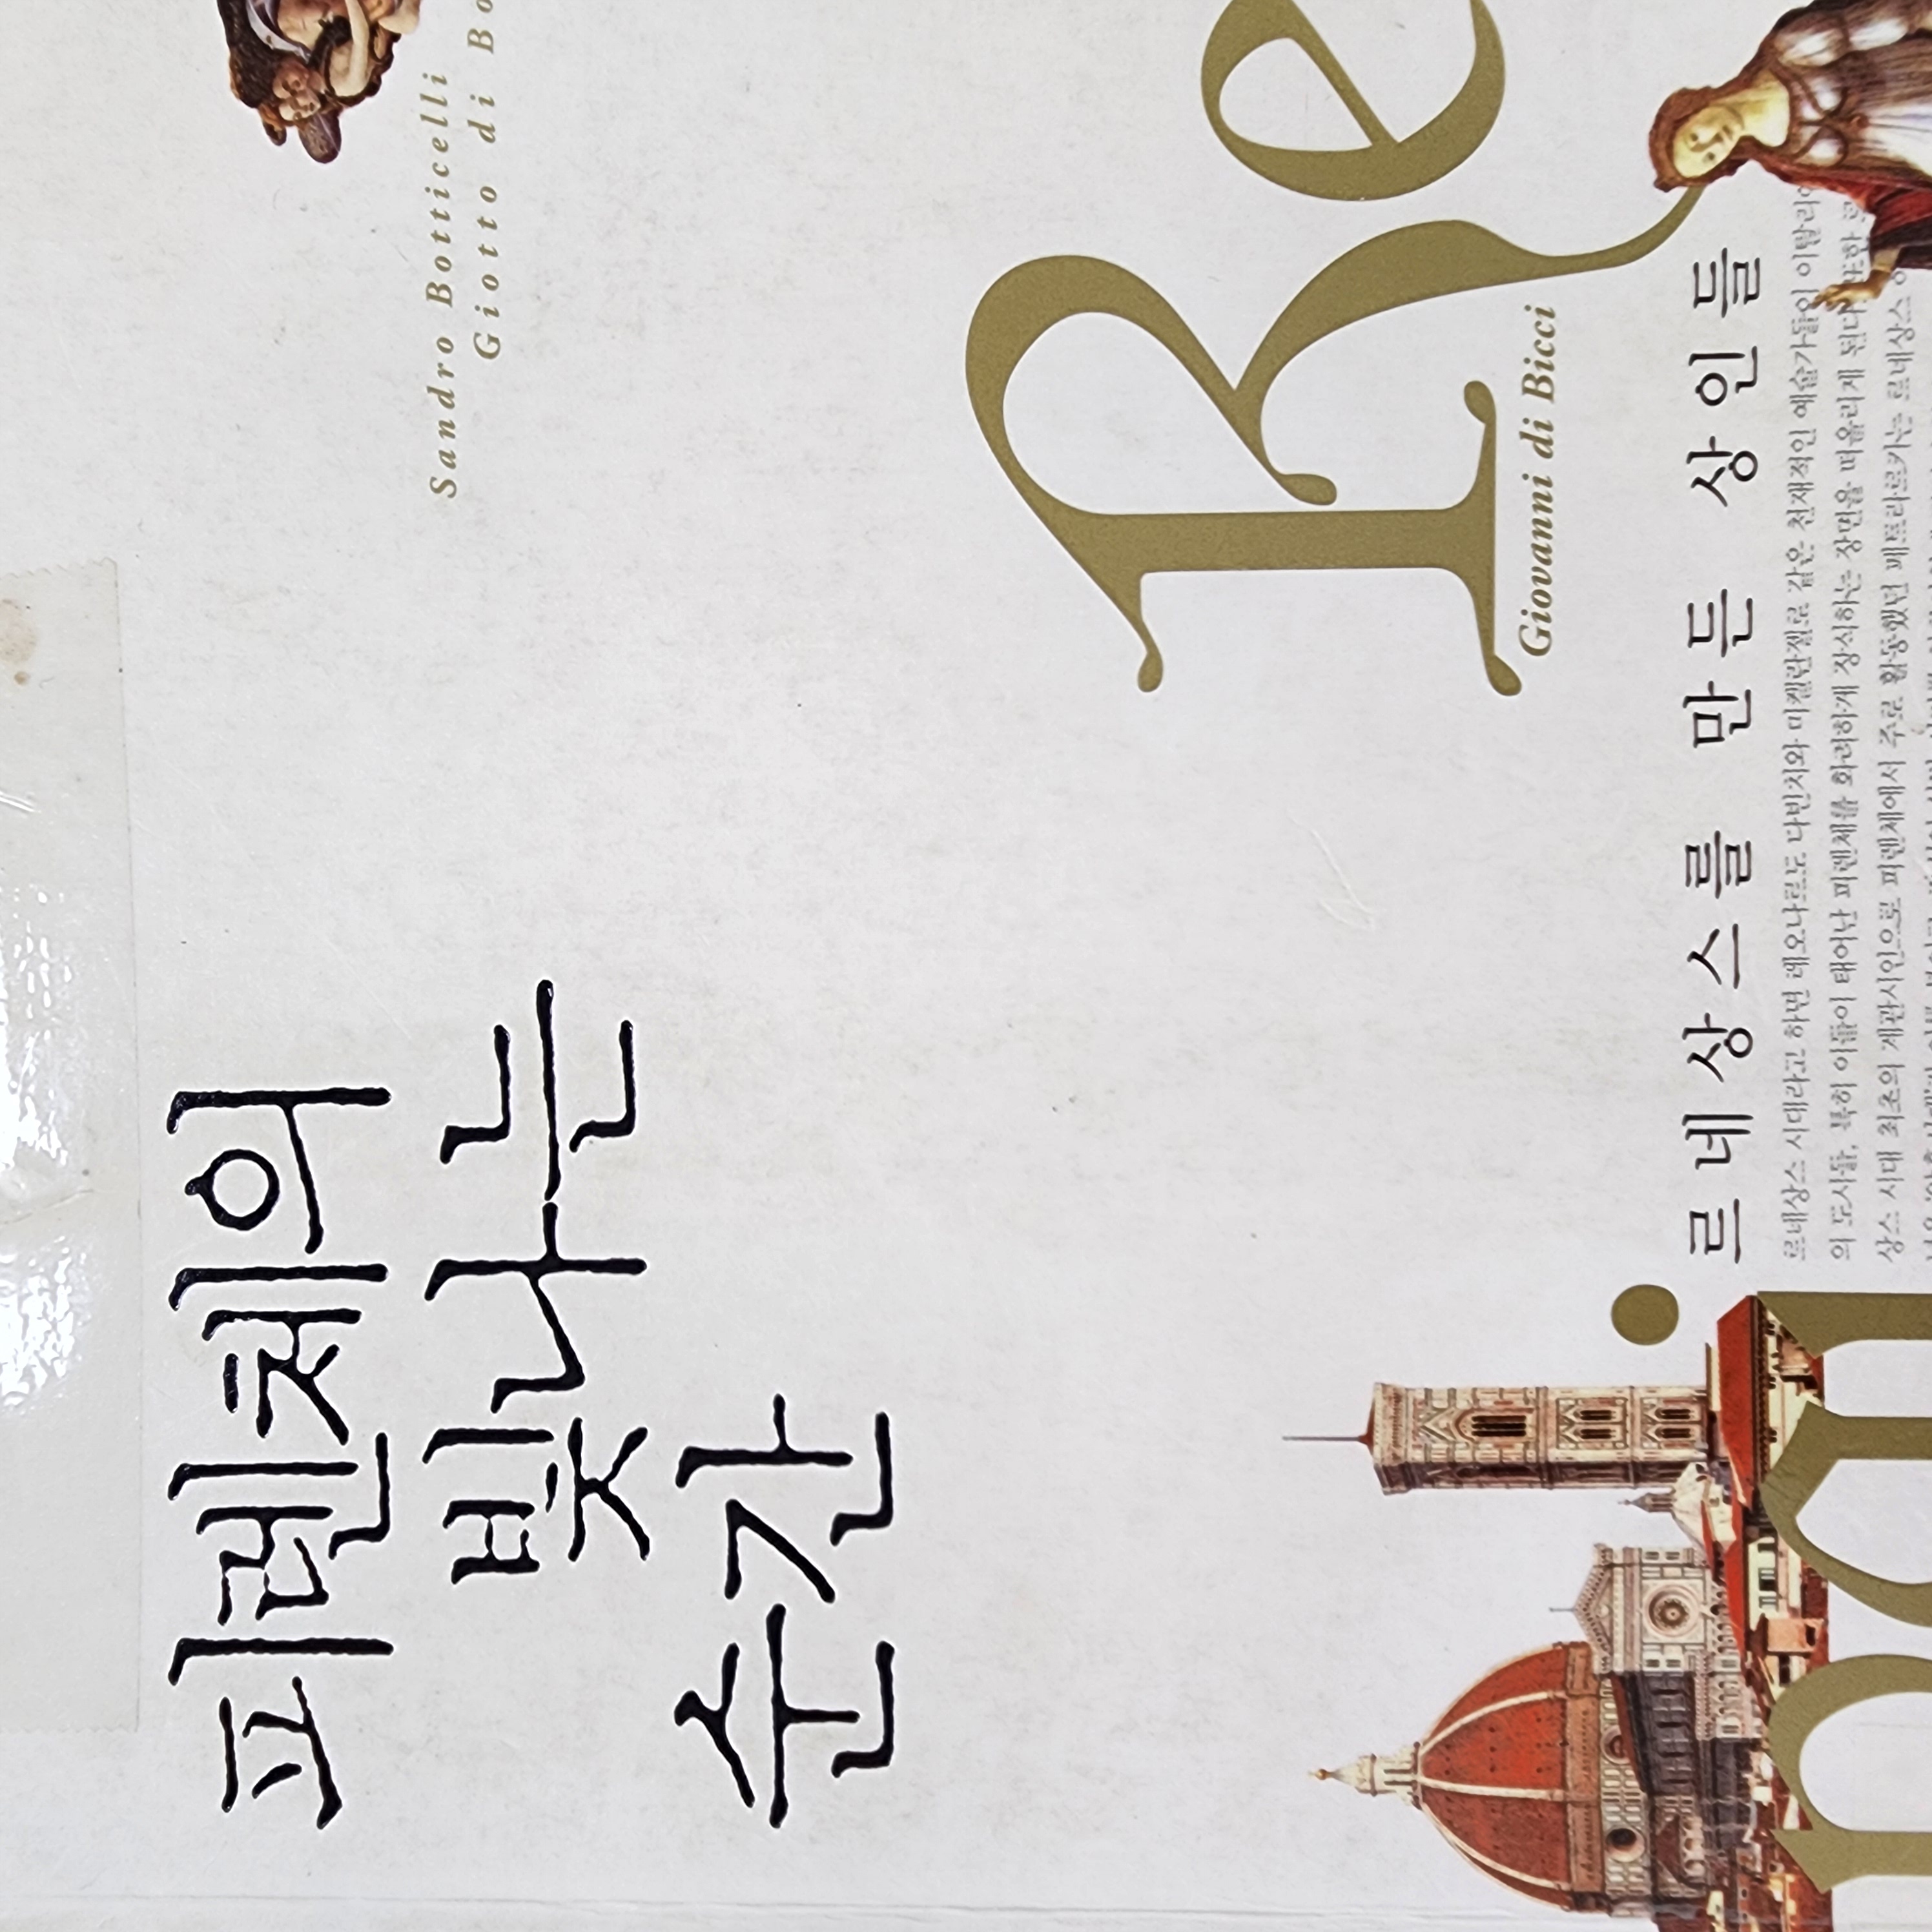 피렌체의
빛나는
순간
Sandro Botticelli
Giotto di Bo
Re
Giovanni di Bicci
르네상스를 만든 상인들
르네상스 시대라고 하면 레오나르도 다빈치와 미켈란젤로 같은 천재적인 예술가들의 이탈리아
의 도시들, 특히 이들이 태어난 피렌체를 화려하게 장식하는 장면을 떠올리게 된다. 또한 르
상스 시대 최초의 계관시인으로 피렌체에서 주로 활동했던 페트라르카는 르네상스